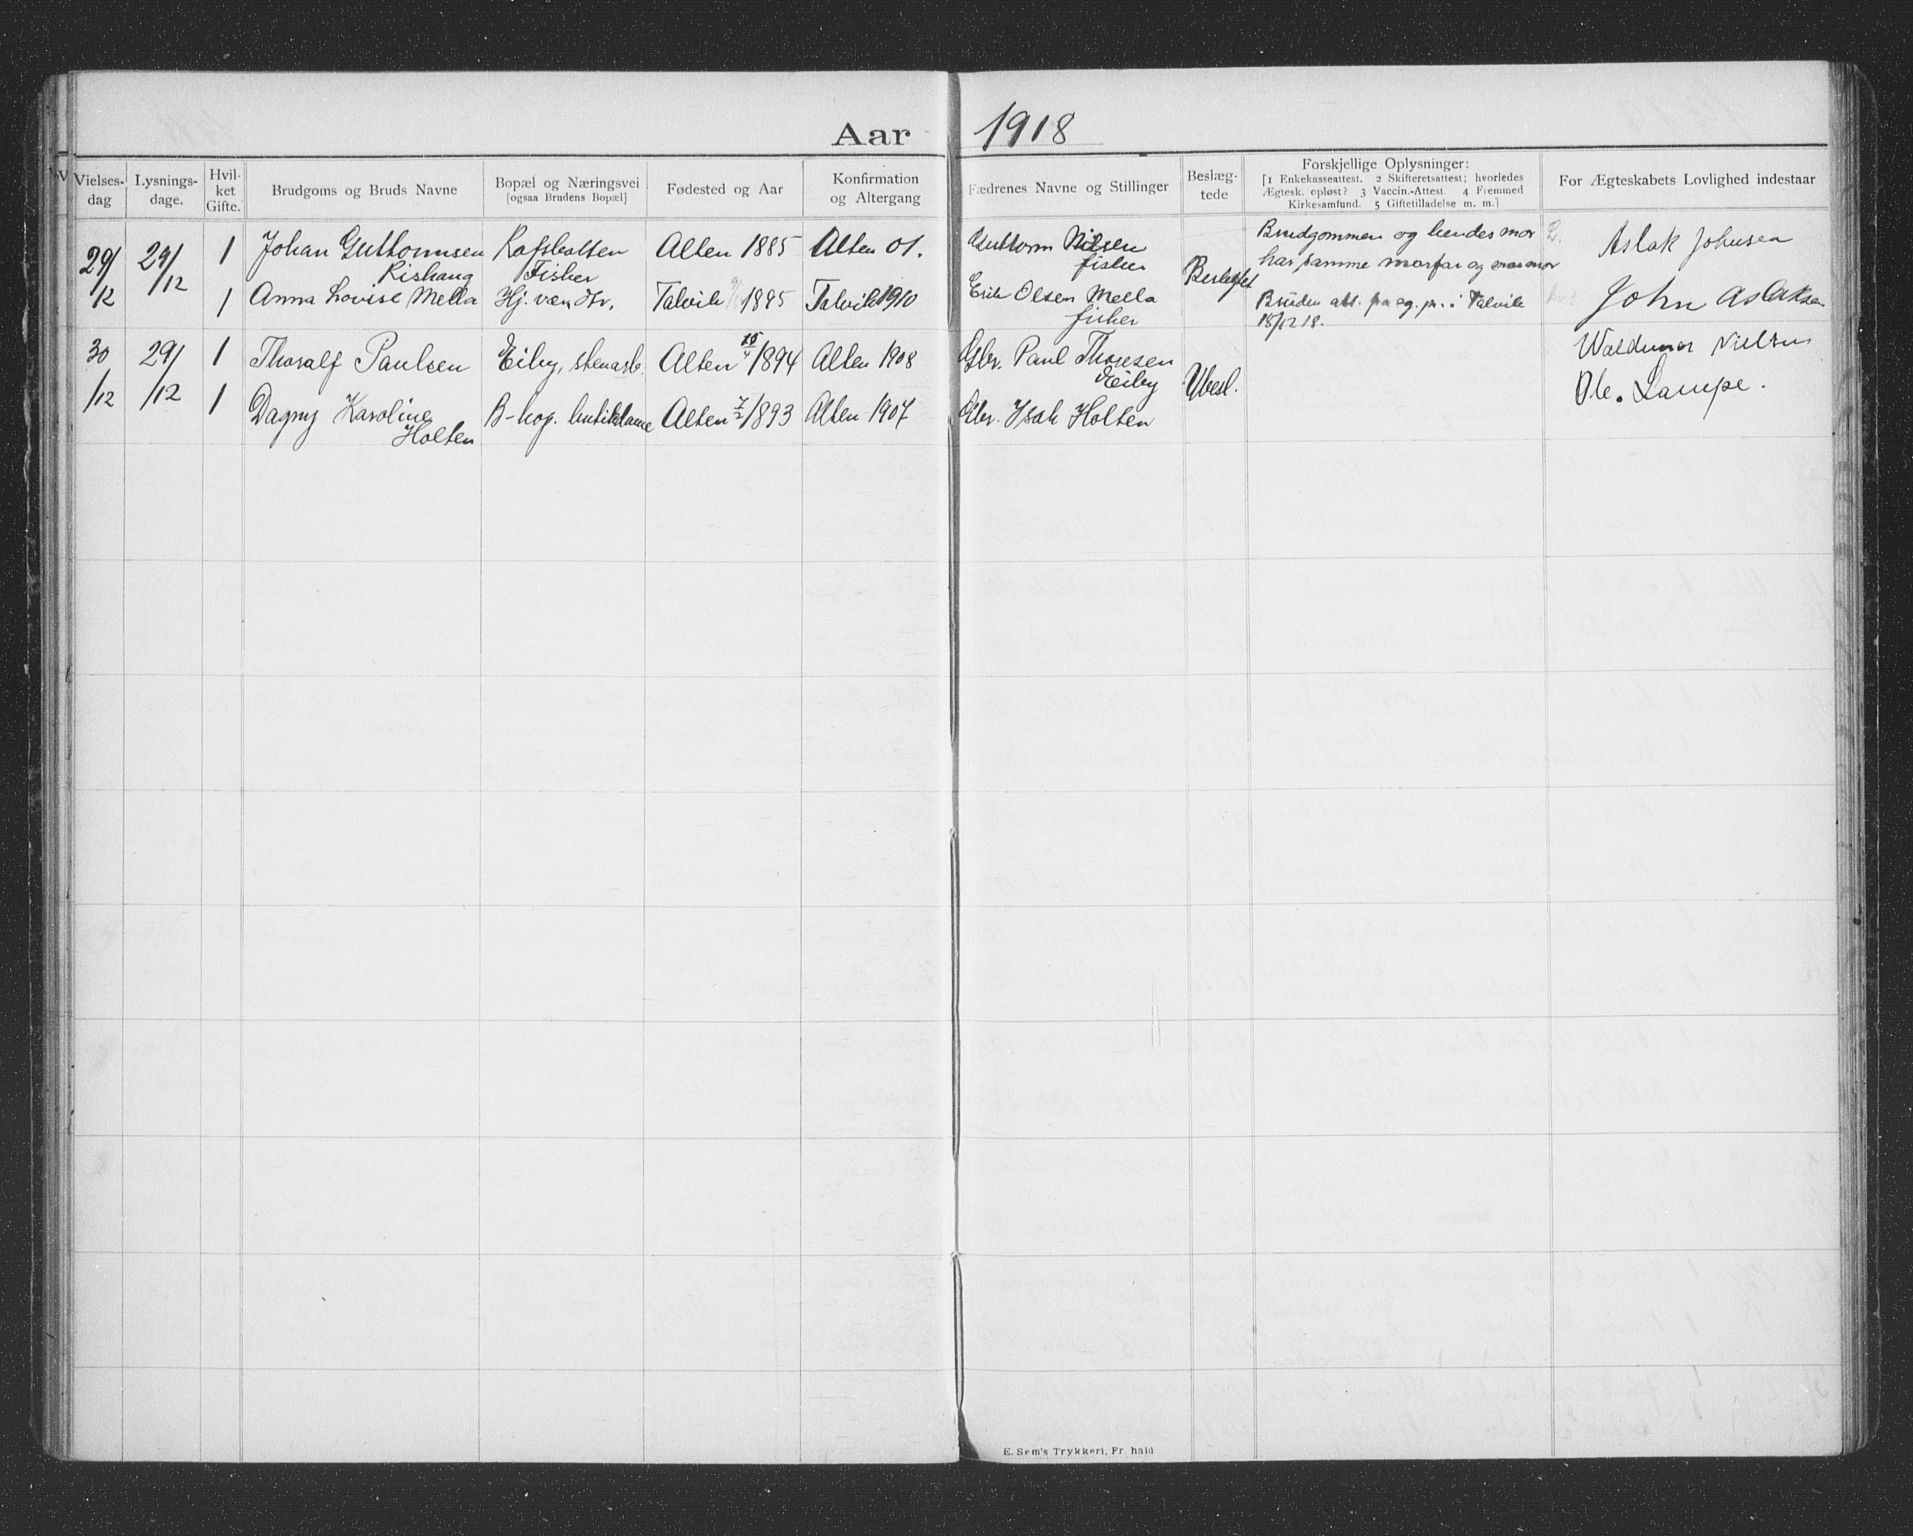 Aar 1918
Vielses- dag
Lysnings- dage.
Hvil- ket Gifte.
Brudgoms og Bruds Navne
Bopæl og Næringsvei [ogsaa Brudens Bopæl]
Fødested og Aar
Konfirmation og Altergang
Fædrenes Navne og Stillinger
Beslæg- tede
Forskjellige Oplysninger:
[1 Enkekasseattest. 2 Skifteretsattest; hvorledes
Ægtesk. opløst? 3 Vaccin.-Attest. 4 Fremmed
Kirkesamfund. 5 Giftetilladelse m. m.]
For Ægteskabets Lovlighed indestaar
29/12 29/12 1 Johan Guttormsen Rishaug Fisker Alten 1885 Alten 01. Guttorm Nilsen fisker Beslegtet Brudgommen og hendes mor har samme morfar og mormor Aslak Johnsen
1 Anna Lovise Mella Hj. Talvik 1895 Talvik 1910 Erik Olsen Mella fisker Bruden att. i Talvik 18/12 18. John Aslaksen
30/12 29/12 1 Thoralf Paulsen Eiby, stenarb. Alten 1894 Alten 1908 Gbr. Paul Thoresen Eiby Ubesl. Waldemar Nielsen
1 Dagny Karoline Holten B-kop. butikdame Alten 7/2 1893 Alten 1907 Gbr. Isak Holten Ole. Lampe.
E. Sem's Trykkeri, Fr. hald